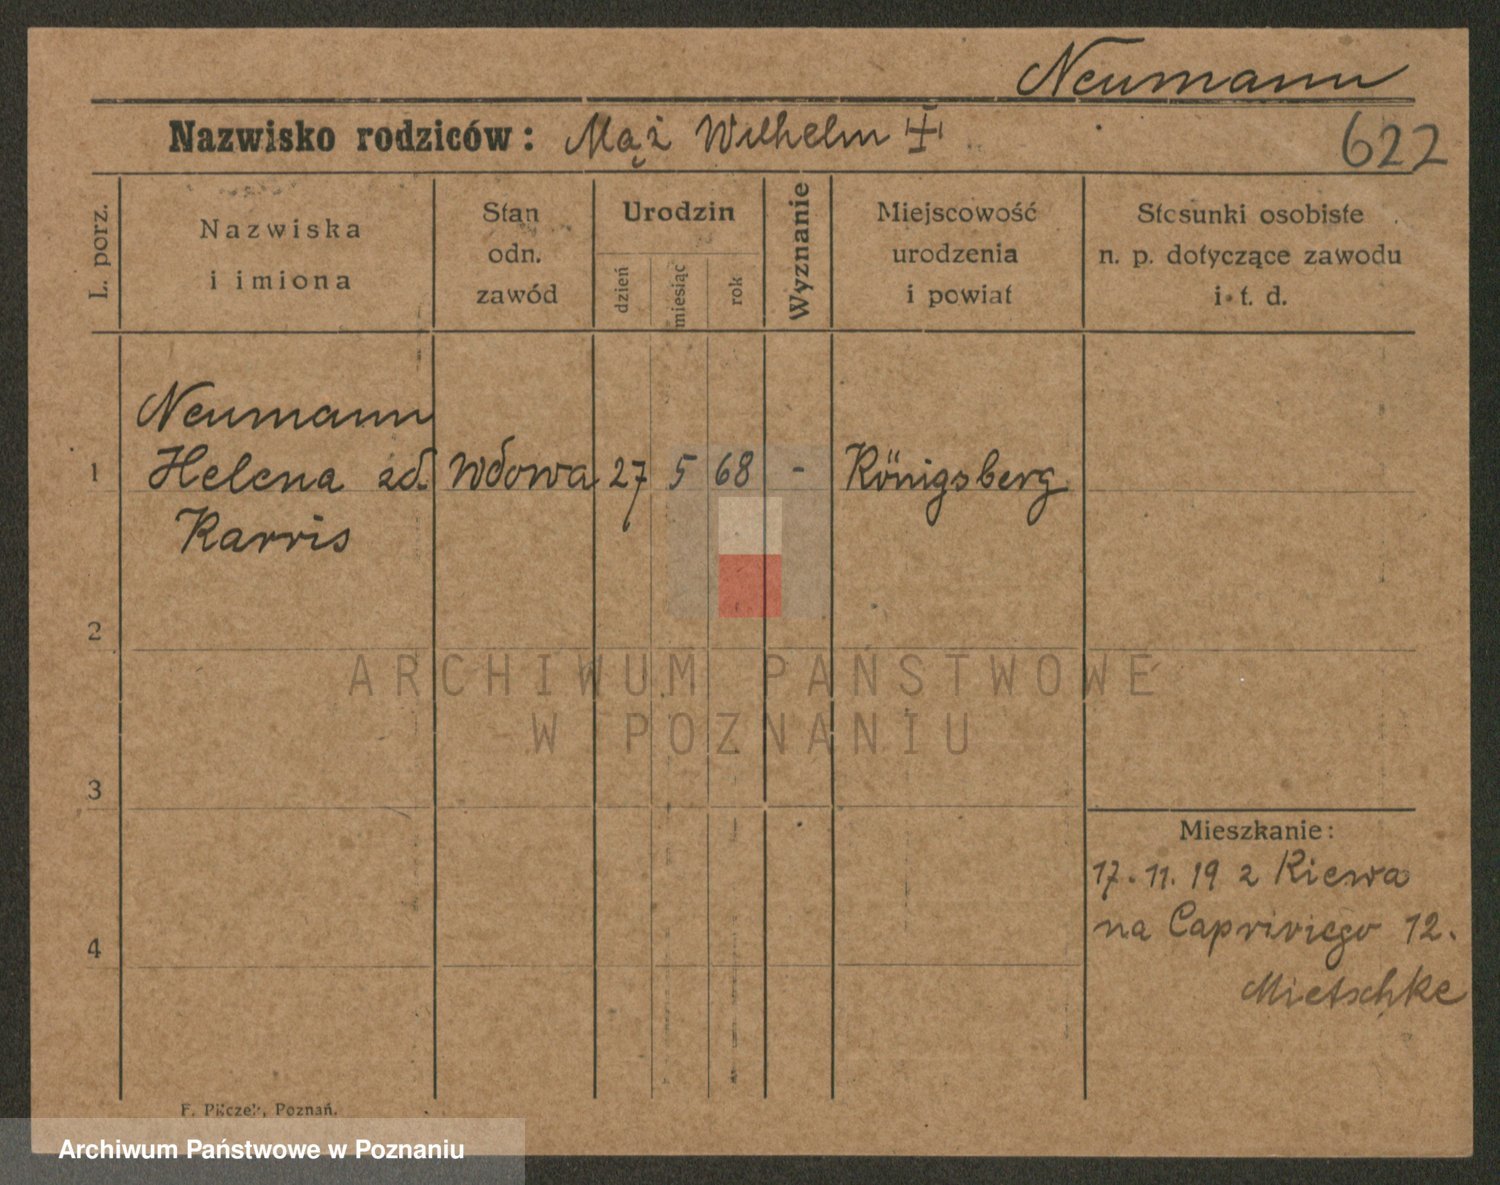 Neumann
Nazwisko rodziców: Mąż Wilhelm
622
L. porz.
Nazwiska
i imiona
Stan
odn.
zawód
Urodzin
dzień
miesiąc
rok
Wyznanie
Miejscowość
urodzenia
i powiat
Stosunki osobiste
n. p. dotyczące zawodu
i t. d.
Neumann
1 Helena zd. Wdowa 27 5 68 - Königsberg
Karris
2
ARCHIWUM PAŃSTWOWE
W POZNANIU
3
Mieszkanie:
17.11.19 z Kiewa
na Capriviego 12.
4
Mietschke
F. Pilczek, Poznań.
Archiwum Państwowe w Poznaniu